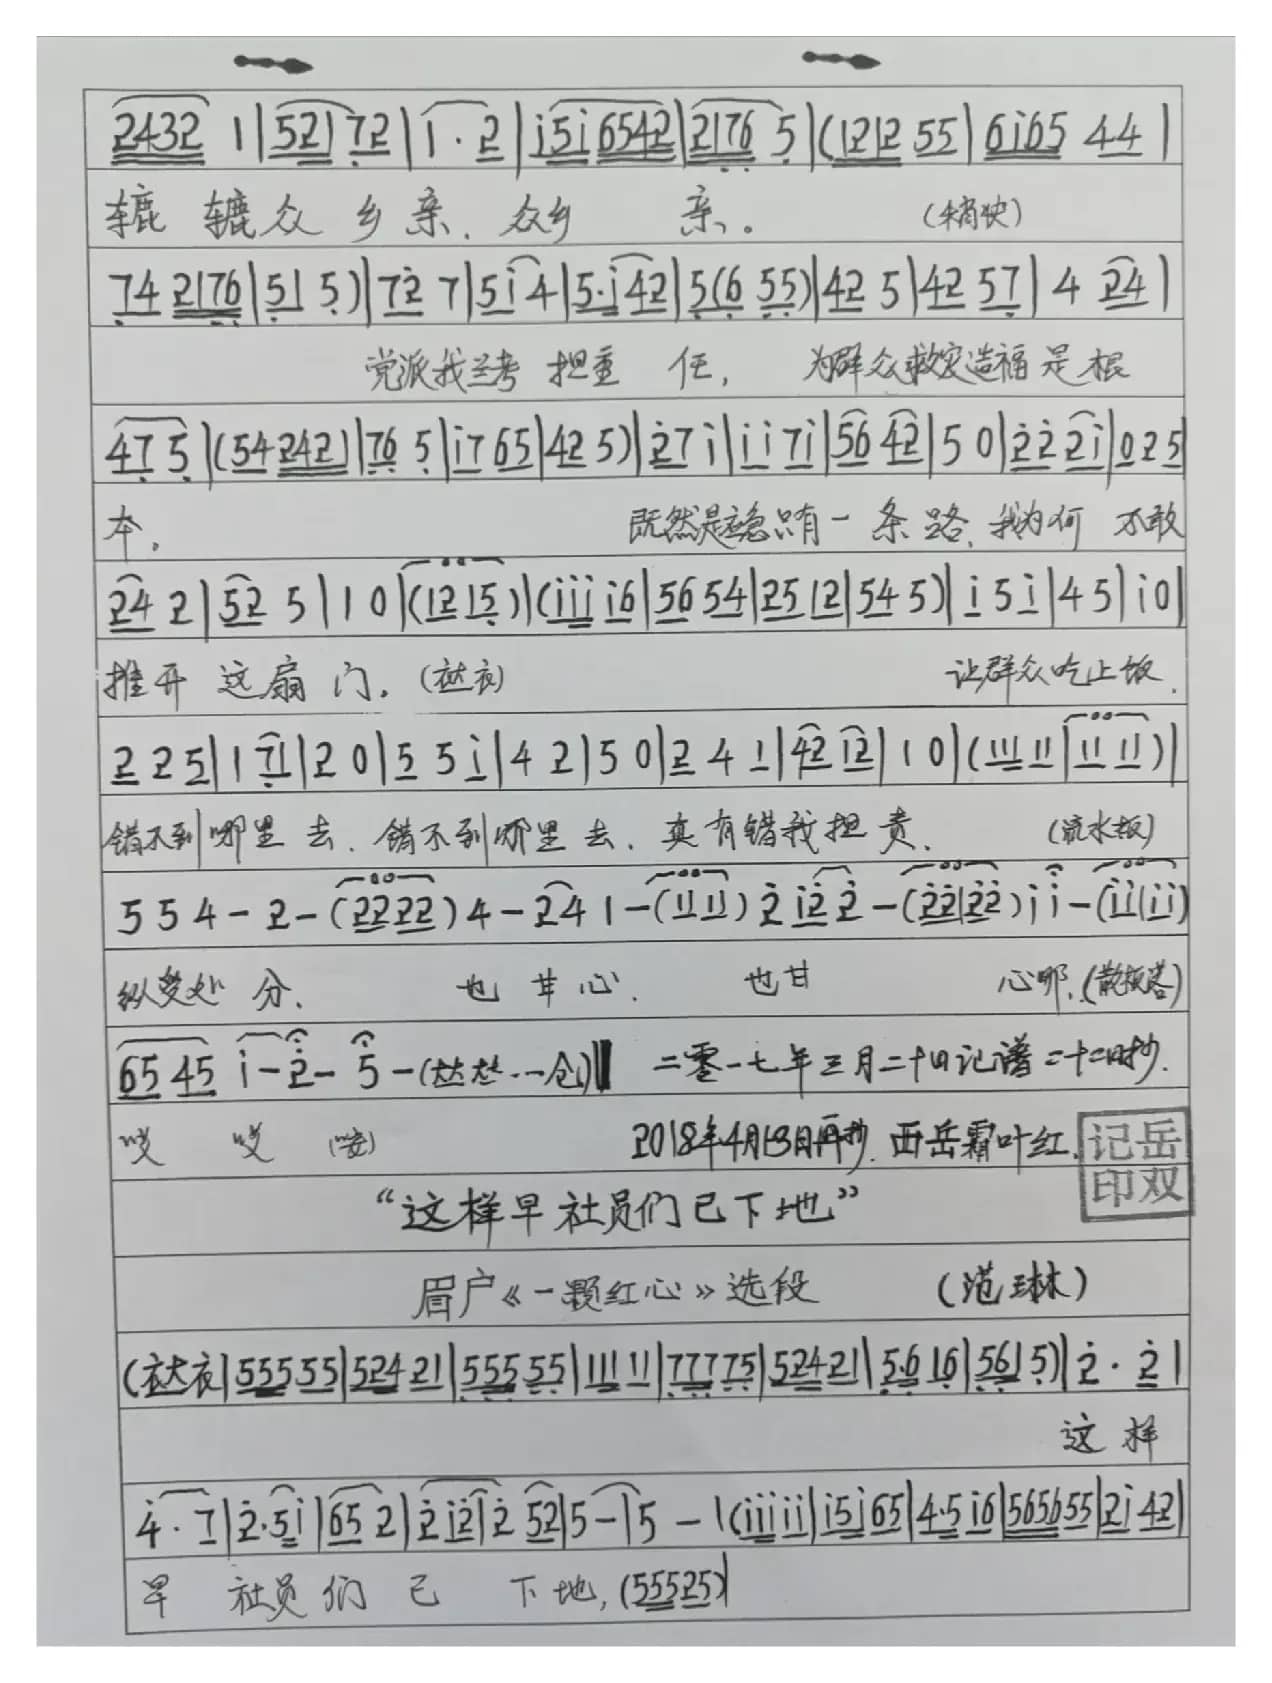 2432 1|521 72|1·2|i5i 6542|2176 5|(1212 55|6i65 44|
辘 辘众 乡亲、众乡 亲、。 (稍快)
74 2176|51 5)|72 7|5i4|5·i42|5(6 55)|42 5|42 57|4 24|
党派我兰考 担重 任, 为群众救灾造福是根
47 5|(54 2421|76 5|i7 65|42 5)|27i|ii7i|56 42|5 0|22 2i|025|
本。 既然是 只有一条路、我为何 不敢
24 2|52 5|1 0|(12 15)(iii i6|56 54|25 12|54 5)|i 5 i|4 5|i 0|
推开 这扇门。(衣) 让群众吃上饭、
2 2 5|1 71|2 0|5 5 i|4 2|5 0|2 4 1|42 12|1 0|(111 11|11 11)|
错不到哪里去、错不到哪里去、真有错我担责、 (流水板)
5 5 4-2-(22 22)4-241-(11 11)2 i2 2-(22|22)i i-(ii|ii)
纵受处分、 也甘心、 也甘 心哪、(散板)
65 45 i-2-5-(··一仓) 二零一七年三月二十日记谱二十二日抄.
哎 哎 (安)
2018年4月13日再抄. 西岳霜叶红.
记岳
印双
“这样早社员们已下地”
眉户《一颗红心》选段 (范琳)
(衣大衣|555 55|524 21|555 55|111 11|777 75|524 21|5·6 16|561 5)|2· 2|
这样
4·7|2·5i|65 2|2 i2i|2 52|5-|5-|(iii ii|i5i 65|4·5 i6|5656 55|2i 42|
早 社员们 已 下地,(555 25)|